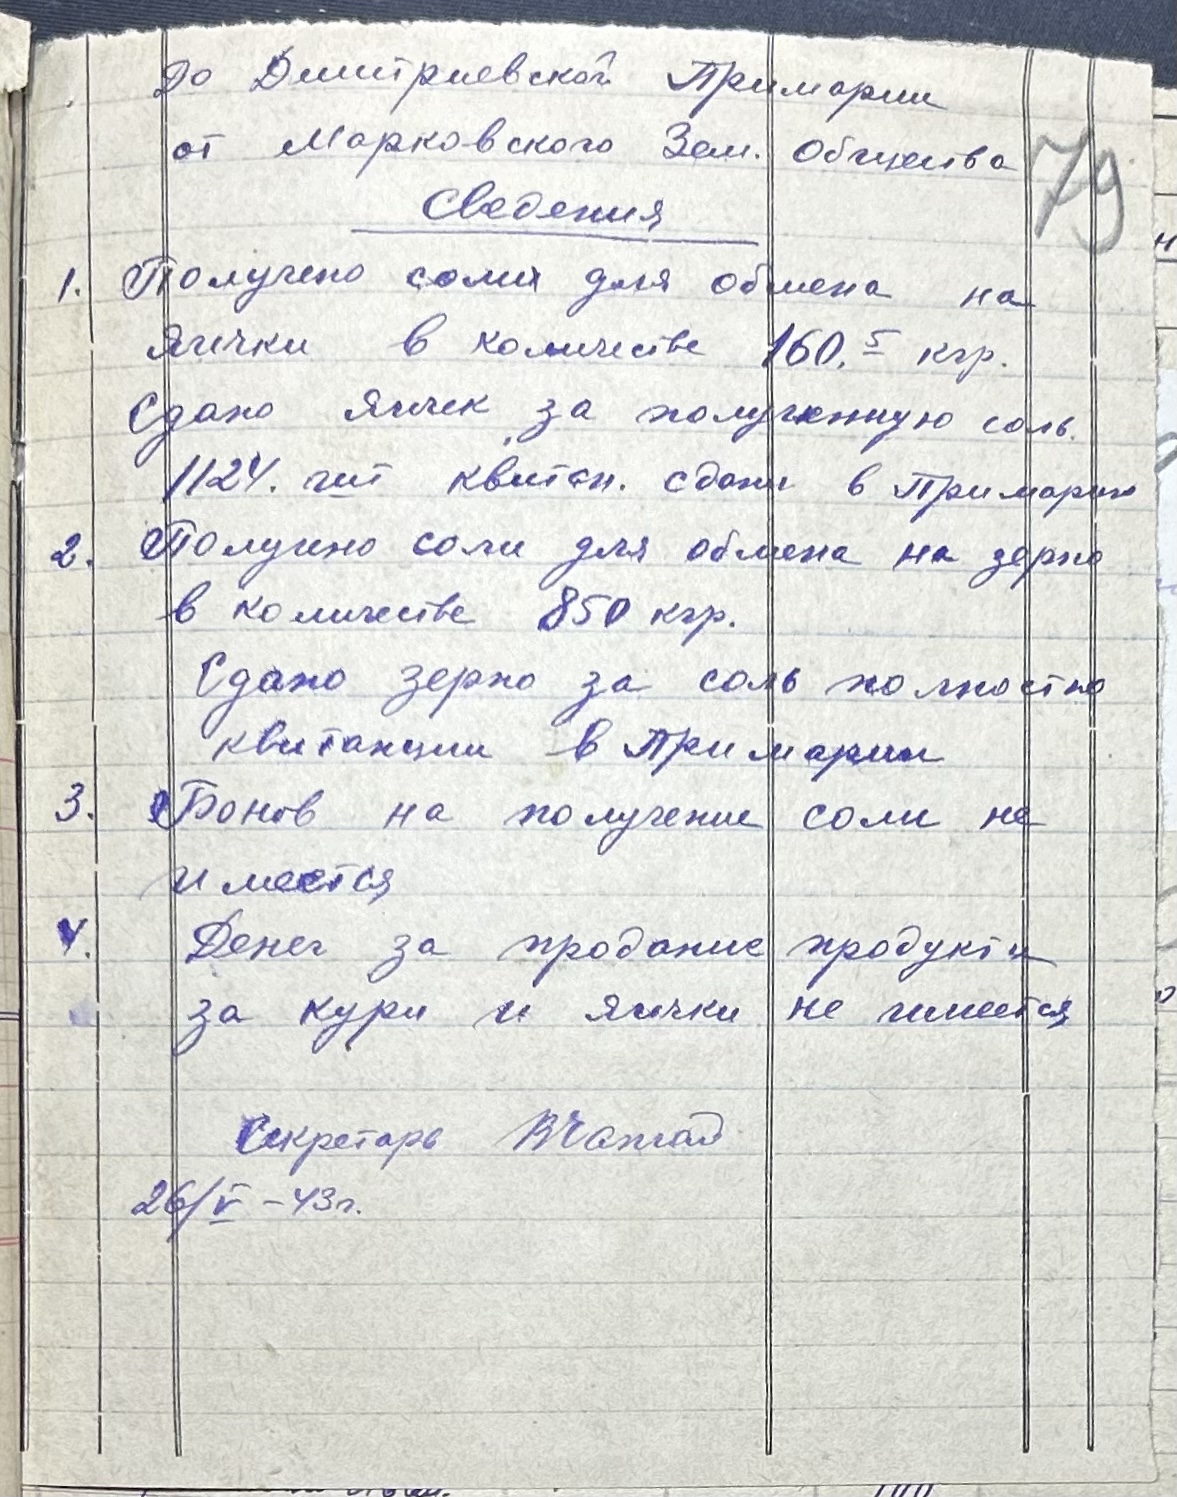 До Дмитриевской Примарии
от Марковского Зем. Общества
79
Сведения
1. Получено соли для обмена на
яички в количестве 160.5 кгр.
Сдано яичек за полученную соль
1124. шт квитан. сдани в Примарию
2. Получино соли для обмена на зерно
в количестве 850 кгр.
Сдано зерно за соль полностю
квитанции в Примарии
3. Бонов на получение соли не
имеется
4. Денег за продание продукти
за кури и яички не имеется
Секретарь
26/V – 43 г.